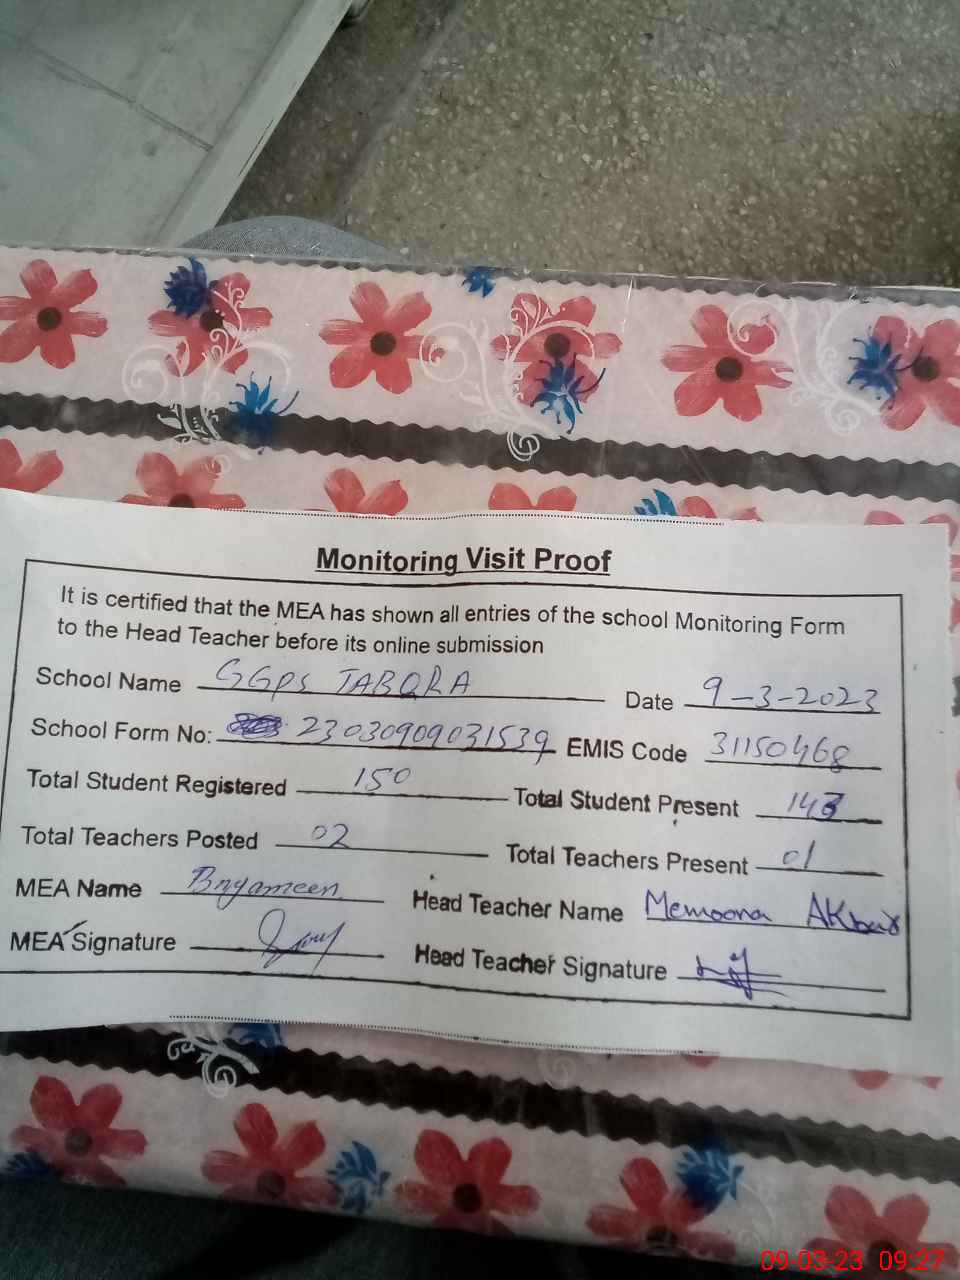 Monitoring Visit Proof
It is certified that the MEA has shown all entries of the school Monitoring Form
to the Head Teacher before its online submission
School Name GGPS TABQRA Date 9-3-2023
School Form No: 23030909031539 EMIS Code 31150468
Total Student Registered 150 Total Student Present 143
Total Teachers Posted 02 Total Teachers Present 01
MEA Name Bnyameen Head Teacher Name Memoona AKbar
MEA Signature Head Teacher Signature
09-03-23 09:27